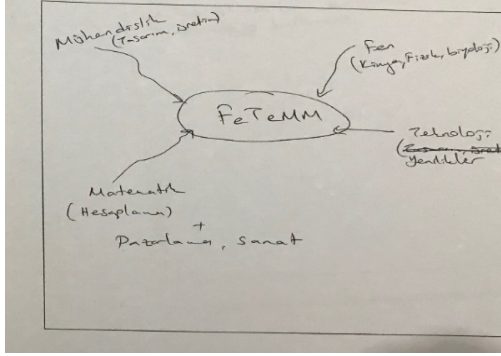 Mühendislik
(Tasarım, üretim)
Fen
(Kimya, Fizik, biyoloji)
FeTeMM
Teknoloji
yenilikler
Matematik
(Hesaplama)
+
Pazarlama, sanat